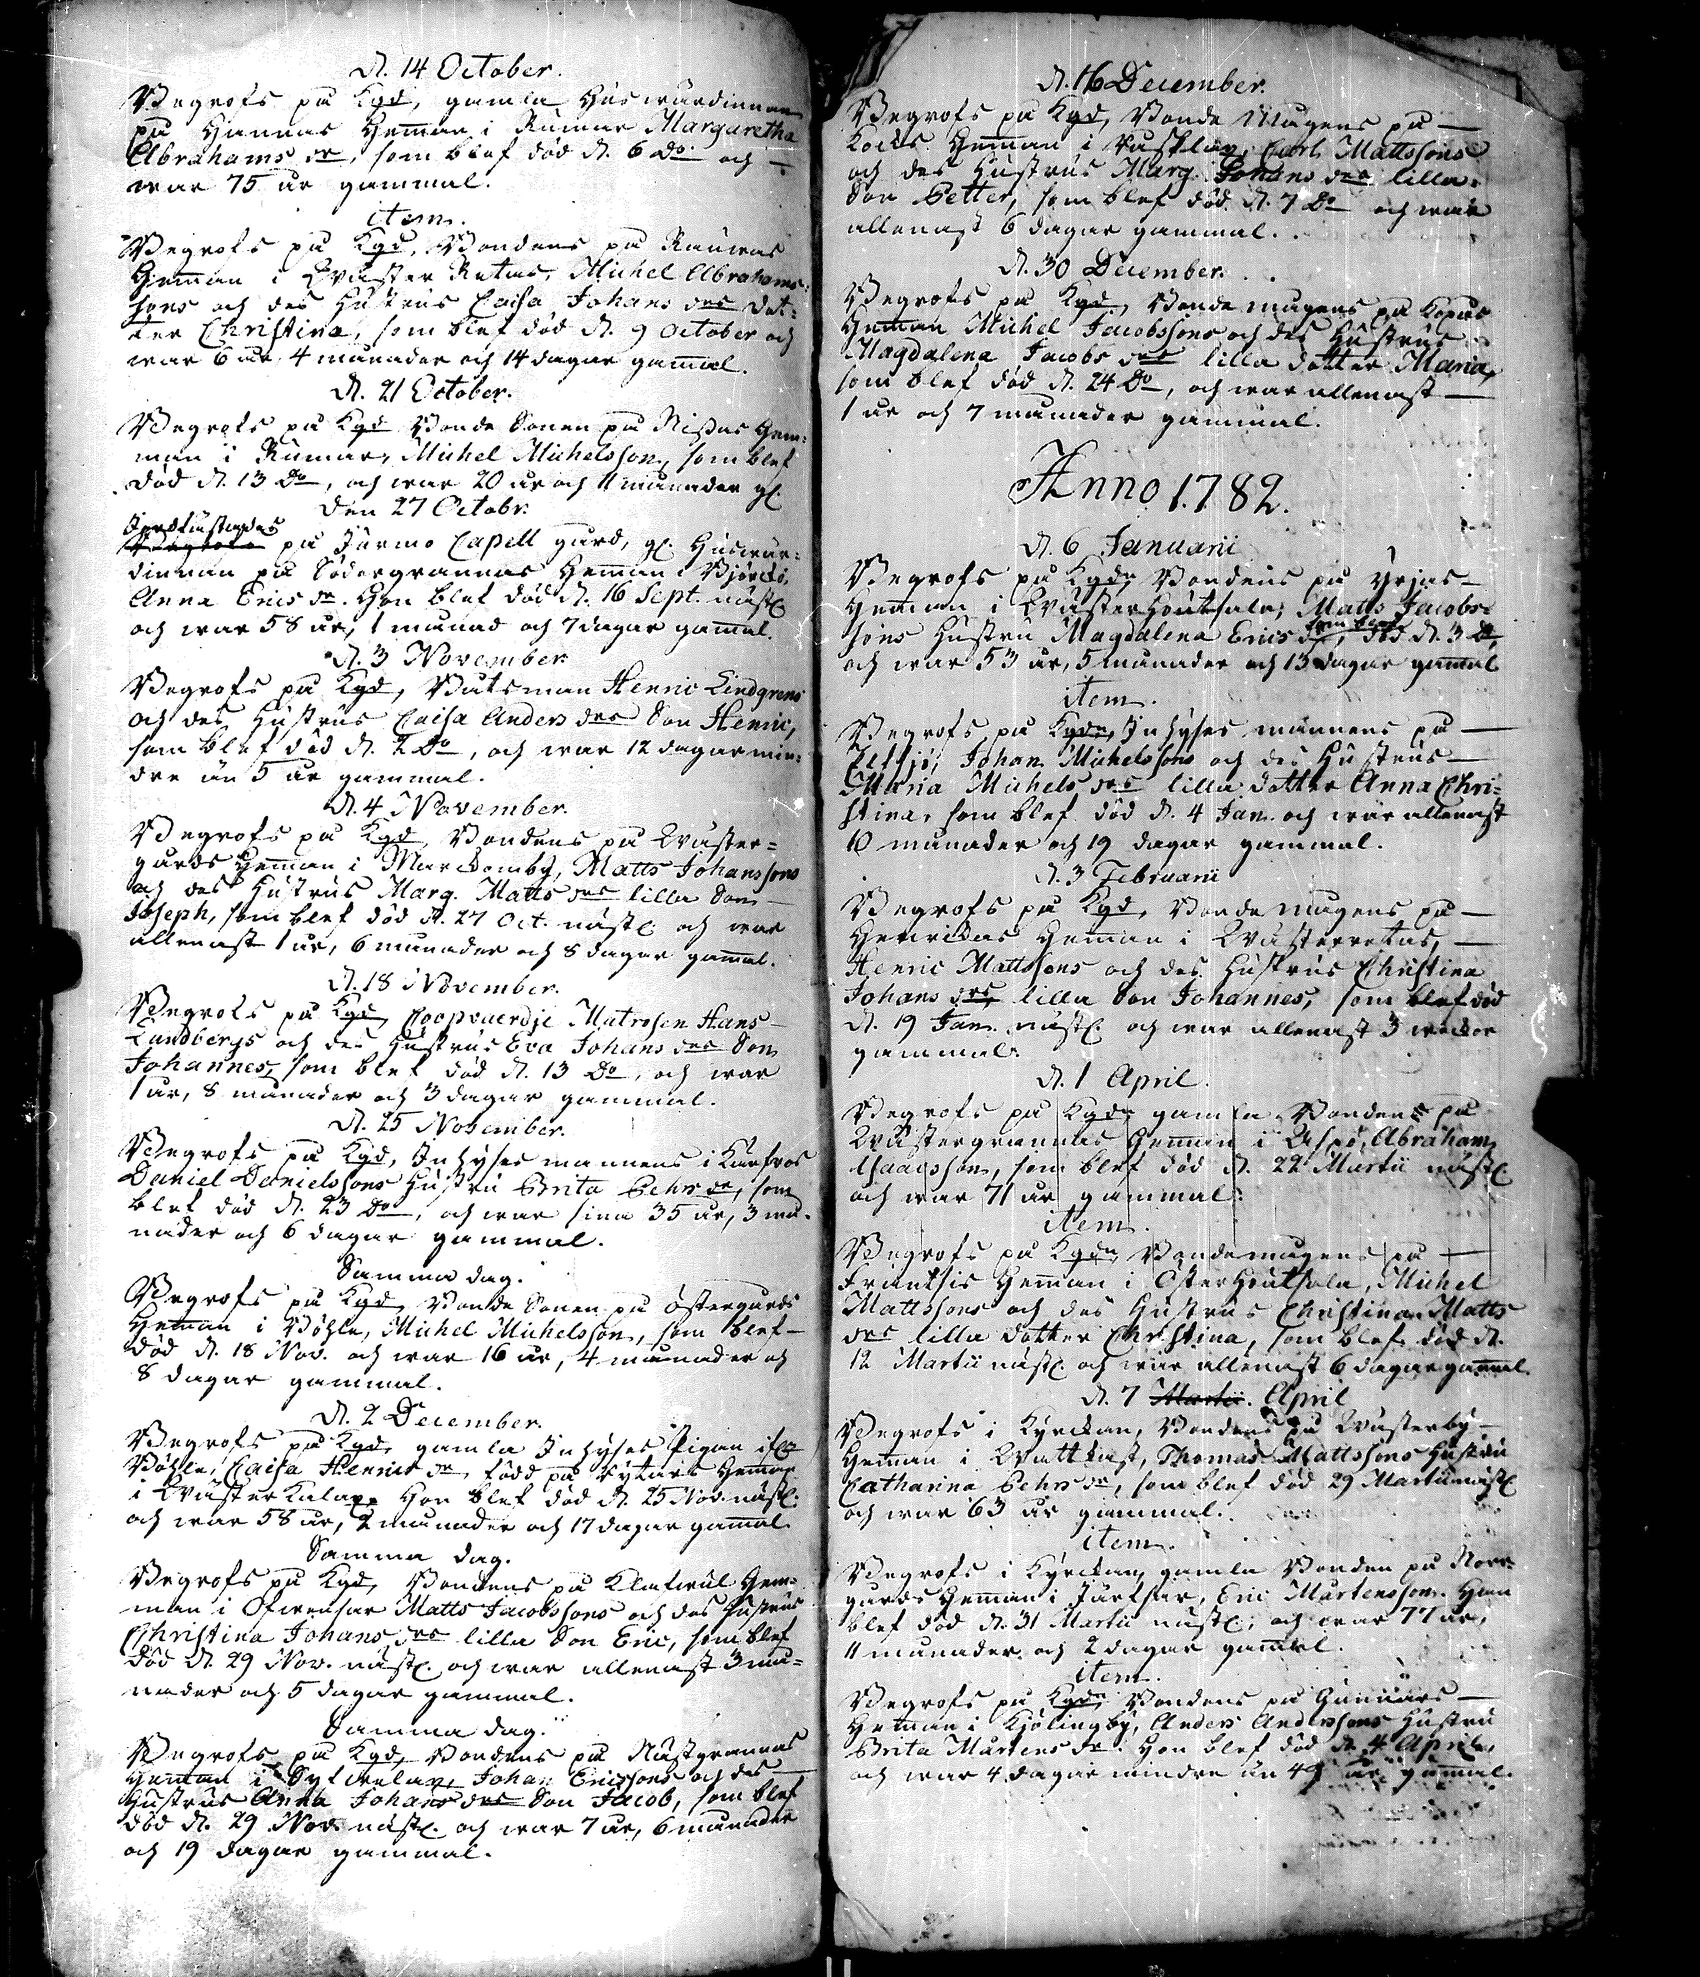 d. 14 October.
Begrofs på Kgd, gamla Huswärdinnan
på Hannas Hemman i Rumar Margaretha
Abrahams dr, som blef död d. 6 Do och
war 75 år gammal.
item.
Begrofs på Kgd, Bondens på
Hemman i Wäster Retais, Michel Abrahams
sons och des Hustrus Caisa Johans drs dot-
ter Christina, som blef död d. 9 October och
war 6 år 4 månader och 14 dagar gamal.
d. 21 October.
Begrofs på Kgd Bonde Sonen på Nissas Hem-
man i Rumar, Michel Michelsson, som blef
död d. 13 Do, och war 20 år och 11 månader gl.
Den 27 Octobr.
Jordfästades
på Jurmo Capell gård, gl. Huswär-
dinnan på Södergrannas Heman i Björckö,
Anna Erics dr. Hon blef död d. 16 Sept. nästl.
och war 58 år, 1 månad och 7 dagar gamal.
d. 3 November.
Begrofs på Kgd, Båtsman Henric Lindgrens
och des Hustrus Caisa Anders drs Son Henric,
som blef död d. 2 Do, och war 12 dagar min-
dre än 5 år gammal.
d. 4 November.
Begrofs på Kgd, Bondens på Wäster-
gårds Heman i Marckomby, Matts Johanssons
och des Hustrus Marg. Matts drs lilla Son
Joseph, som blef död d. 27 Oct. nästl. och war
allenast 1 år, 6 månader och 8 dagar gamal.
d. 18 November.
Begrofs på Kgd, Coopvaerdje Matrosen Hans
Lundbergs och des Hustrus Eva Johans drs Son
Johannes, som blef död d. 13 Do, och war
1 år, 8 månader och 3 dagar gammal.
d. 25 November.
Begrofs på Kgd, Inhyses mannens i
Daniel Danielssons Hustru Brita Pehrs dr, som
blef död d. 23 Do, och war sina 35 år, 3 må-
nader och 6 dagar gammal.
Samma dag.
Begrofs på Kgd, Bonde Sonen på Östergårds
Heman i Böhle, Michel Michelsson, som blef
död d. 18 Nov. och war 16 år, 4 månader och
8 dagar gammal.
d. 2 December.
Begrofs på Kgd, gamla Inhyses Pigan
Böhle, Caisa Henrics dr, född på Heman
i Wäster Kalax. Hon blef död d. 25 Nov. nästl.
och war 58 år, 2 månader och 17 dagar gamal
Samma dag.
Begrofs på Kgd, Bondens på Hem-
man i Matts Jacobssons och des Hustrus
Christina Johans drs lilla Son Eric, som blef
död d. 29 Nov. nästl. och war allenast 3 må-
nader och 5 dagar gammal.
Samma dag.
Begrofs på Kgd, Bondens på Nästgrannas
Heman i Johan Ericssons och des
Hustrus Anna Johans drs Son Jacob, som blef
död d. 29 Nov. nästl. och war 7 år, 6 månader
och 19 dagar gammal.
d. 16 December.
Begrofs på Kgd, Bonde Mågens på
Kocks Heman i Carl Mattssons
och des Hustrus Marg. Johans drs lilla
Son Petter, som blef död d. 7 Do och war
allenast 6 dagar gammal.
d. 30 December.
Begrofs på Kgd, Bonde mågens på
Heman Michel Jacobssons och des Hustrus
Magdalena Jacobs drs lilla dotter Maria,
som blef död d. 24 Do, och war allenast
1 år och 7 månader gammal.
Anno 1782.
d. 6 Januarii
Begrofs på Kgdn Bondens på Yrjas
Heman i Wäster Houtsala, Matts Jacobs
sons Hustru Magdalena Erics dr, som blef död d. 3 Do,
och war 53 år, 5 månader och 13 dagar gamal
item.
Begrofs på Kgdn, Inhyses mannens på
Johan Michelssons och des Hustrus
Maria Michels drs lilla dotter Anna Chri-
stina, som blef död d. 4 Jan. och war allenast
10 månader och 19 dagar gammal.
d. 3 Februarii
Begrofs på Kgd, Bonde mågens på
Henrickas Heman i Wästerretais,
Henric Mattssons och des Hustrus Christina
Johans drs lilla Son Johannes, som blef död
d. 19 Jan. nästl. och war allenast 3 weckor
gammal.
d. 1 April.
Begrofs på Kgdn gamla Bondens på
Wästergrannas Heman i Aspö, Abraham
Isaacsson, som blef död d. 22 Martii nästl.
och war 71 år gammal.
item.
Begrofs på Kgdn Bonde mågens på
Fräntsis Heman i Österhoutsala, Michel
Mattssons och des Hustrus Christina Matts
drs lilla dotter Christina, som blef död d.
12 Martii nästl. och war allenast 6 dagar gamal.
d. 7 Martii. April
Begrofs i Kyrckan, Bondens på Wästerby
Heman i Wattkast, Thomas Mattssons Hustru
Catharina Pehrs dr, som blef död 29 Martii nästl.
och war 63 år gammal.
item.
Begrofs i Kyrckan, gamla Bonden på Norr-
gårds Heman i Eric Mårtensson. Han
blef död d. 31 Martii nästl. och war 77 år,
11 månader och 2 dagar gamal.
item.
Begrofs på Kgdn Bondens på Gunnars
Heman i Kjölingby, Anders Anderssons Hustru
Brita Mårtens dr. Hon blef död d. 4 April,
och war 4 dagar mindre än 49 år gamal.